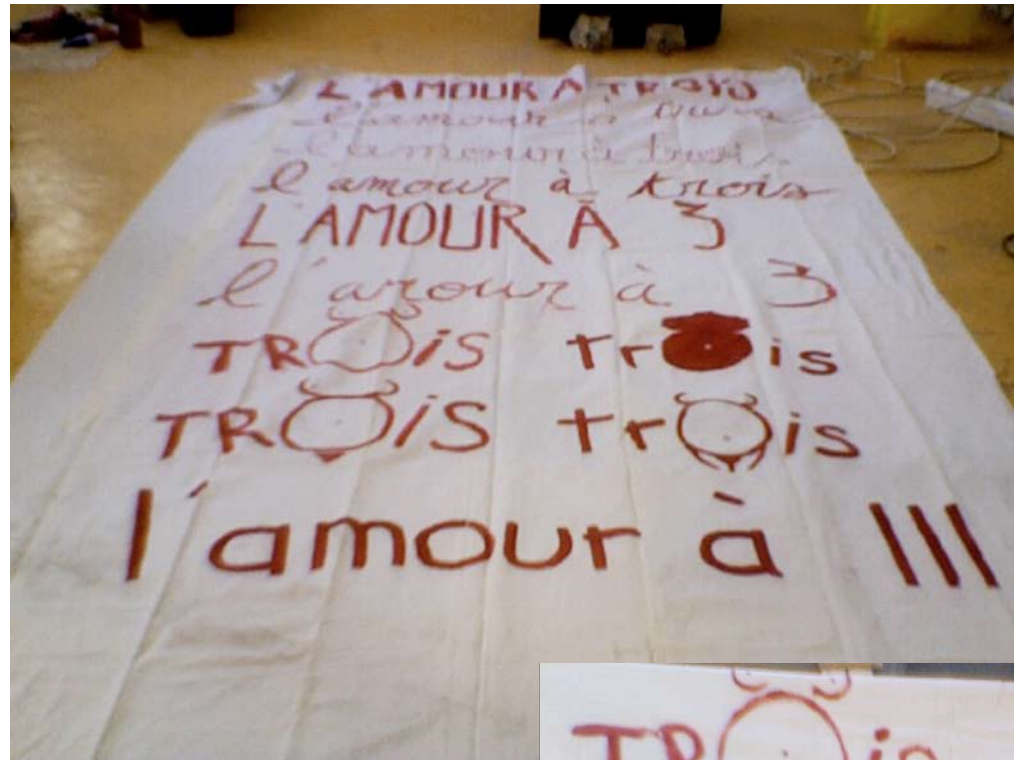 L'AMOUR A TROIS
l'amour à trois
l'amour à trois
l'amour à trois
L'AMOUR À 3
l'arour à 3
TROiS trOis
TROiS trOis
l'amour à III
TROis